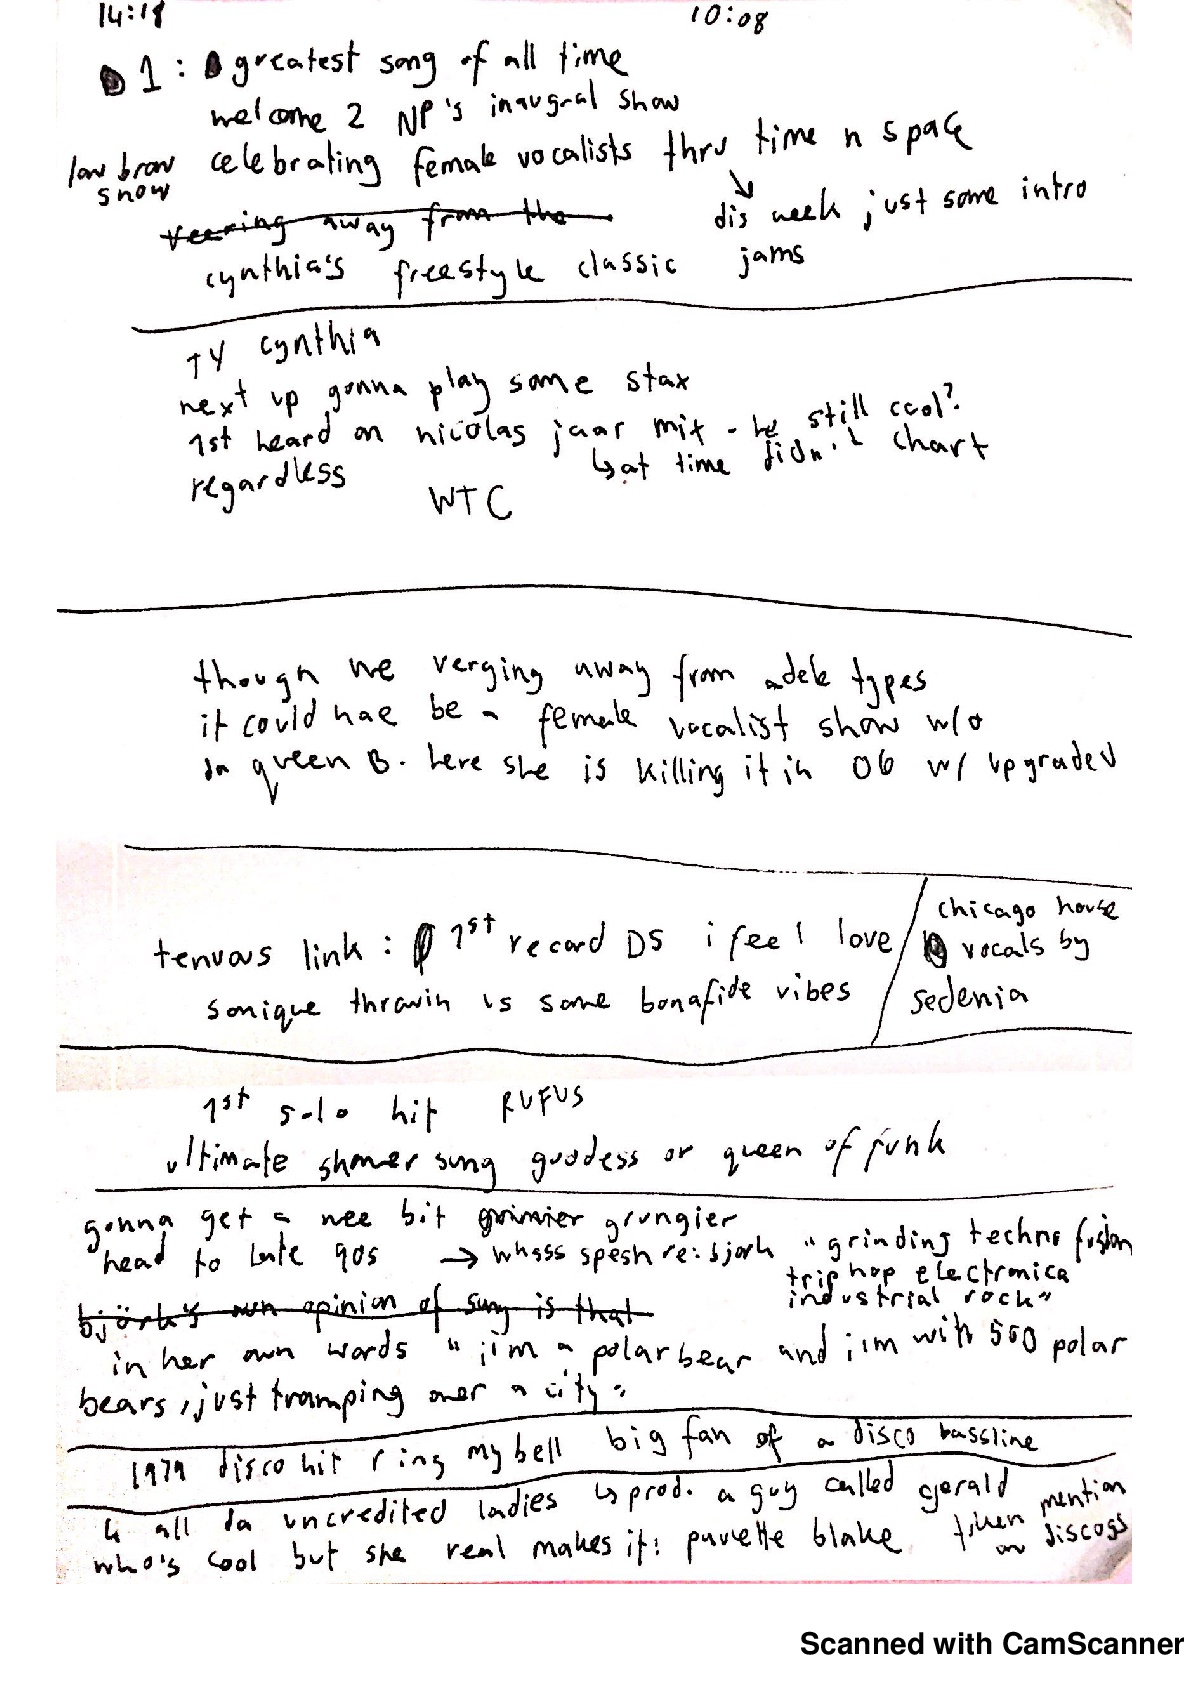 14:18 10:08
1: greatest song of all time
welcome 2 NP's inaugral show
low brow celebrating female vocalists thru time n space
show
dis week just some intro
veering away from the
jams
cynthia's freestyle classic
TY cynthia
next up gonna play some stax
1st heard on nicolas jaar mix - he still cool?
↳ at time didn't chart
regardless
WTC
though we verging away from adele types
it could nae be a female vocalist show w/o
da queen B. here she is killing it in 06 w/ upgraded
chicago house
tenuous link: 1st record DS i feel love
vocals by
sonique throwin us some bonafide vibes
sedenia
1st solo hit RUFUS
ultimate shower song goddess or queen of funk
gonna get a wee bit grimier grungier
head to late 90s → whass spesh re: bjork "grinding techno fusion
trip hop electronica
industrial rock"
björk's own opinion of song is that
in her own words "i'm a polar bear and i'm with 500 polar
bears, just tramping over a city"
1979 disco hit ring my bell big fan of a disco bassline
↳ all da uncredited ladies ↳ prod. a guy called gerald
mention
who's cool but she real makes it:  blake
on discogs